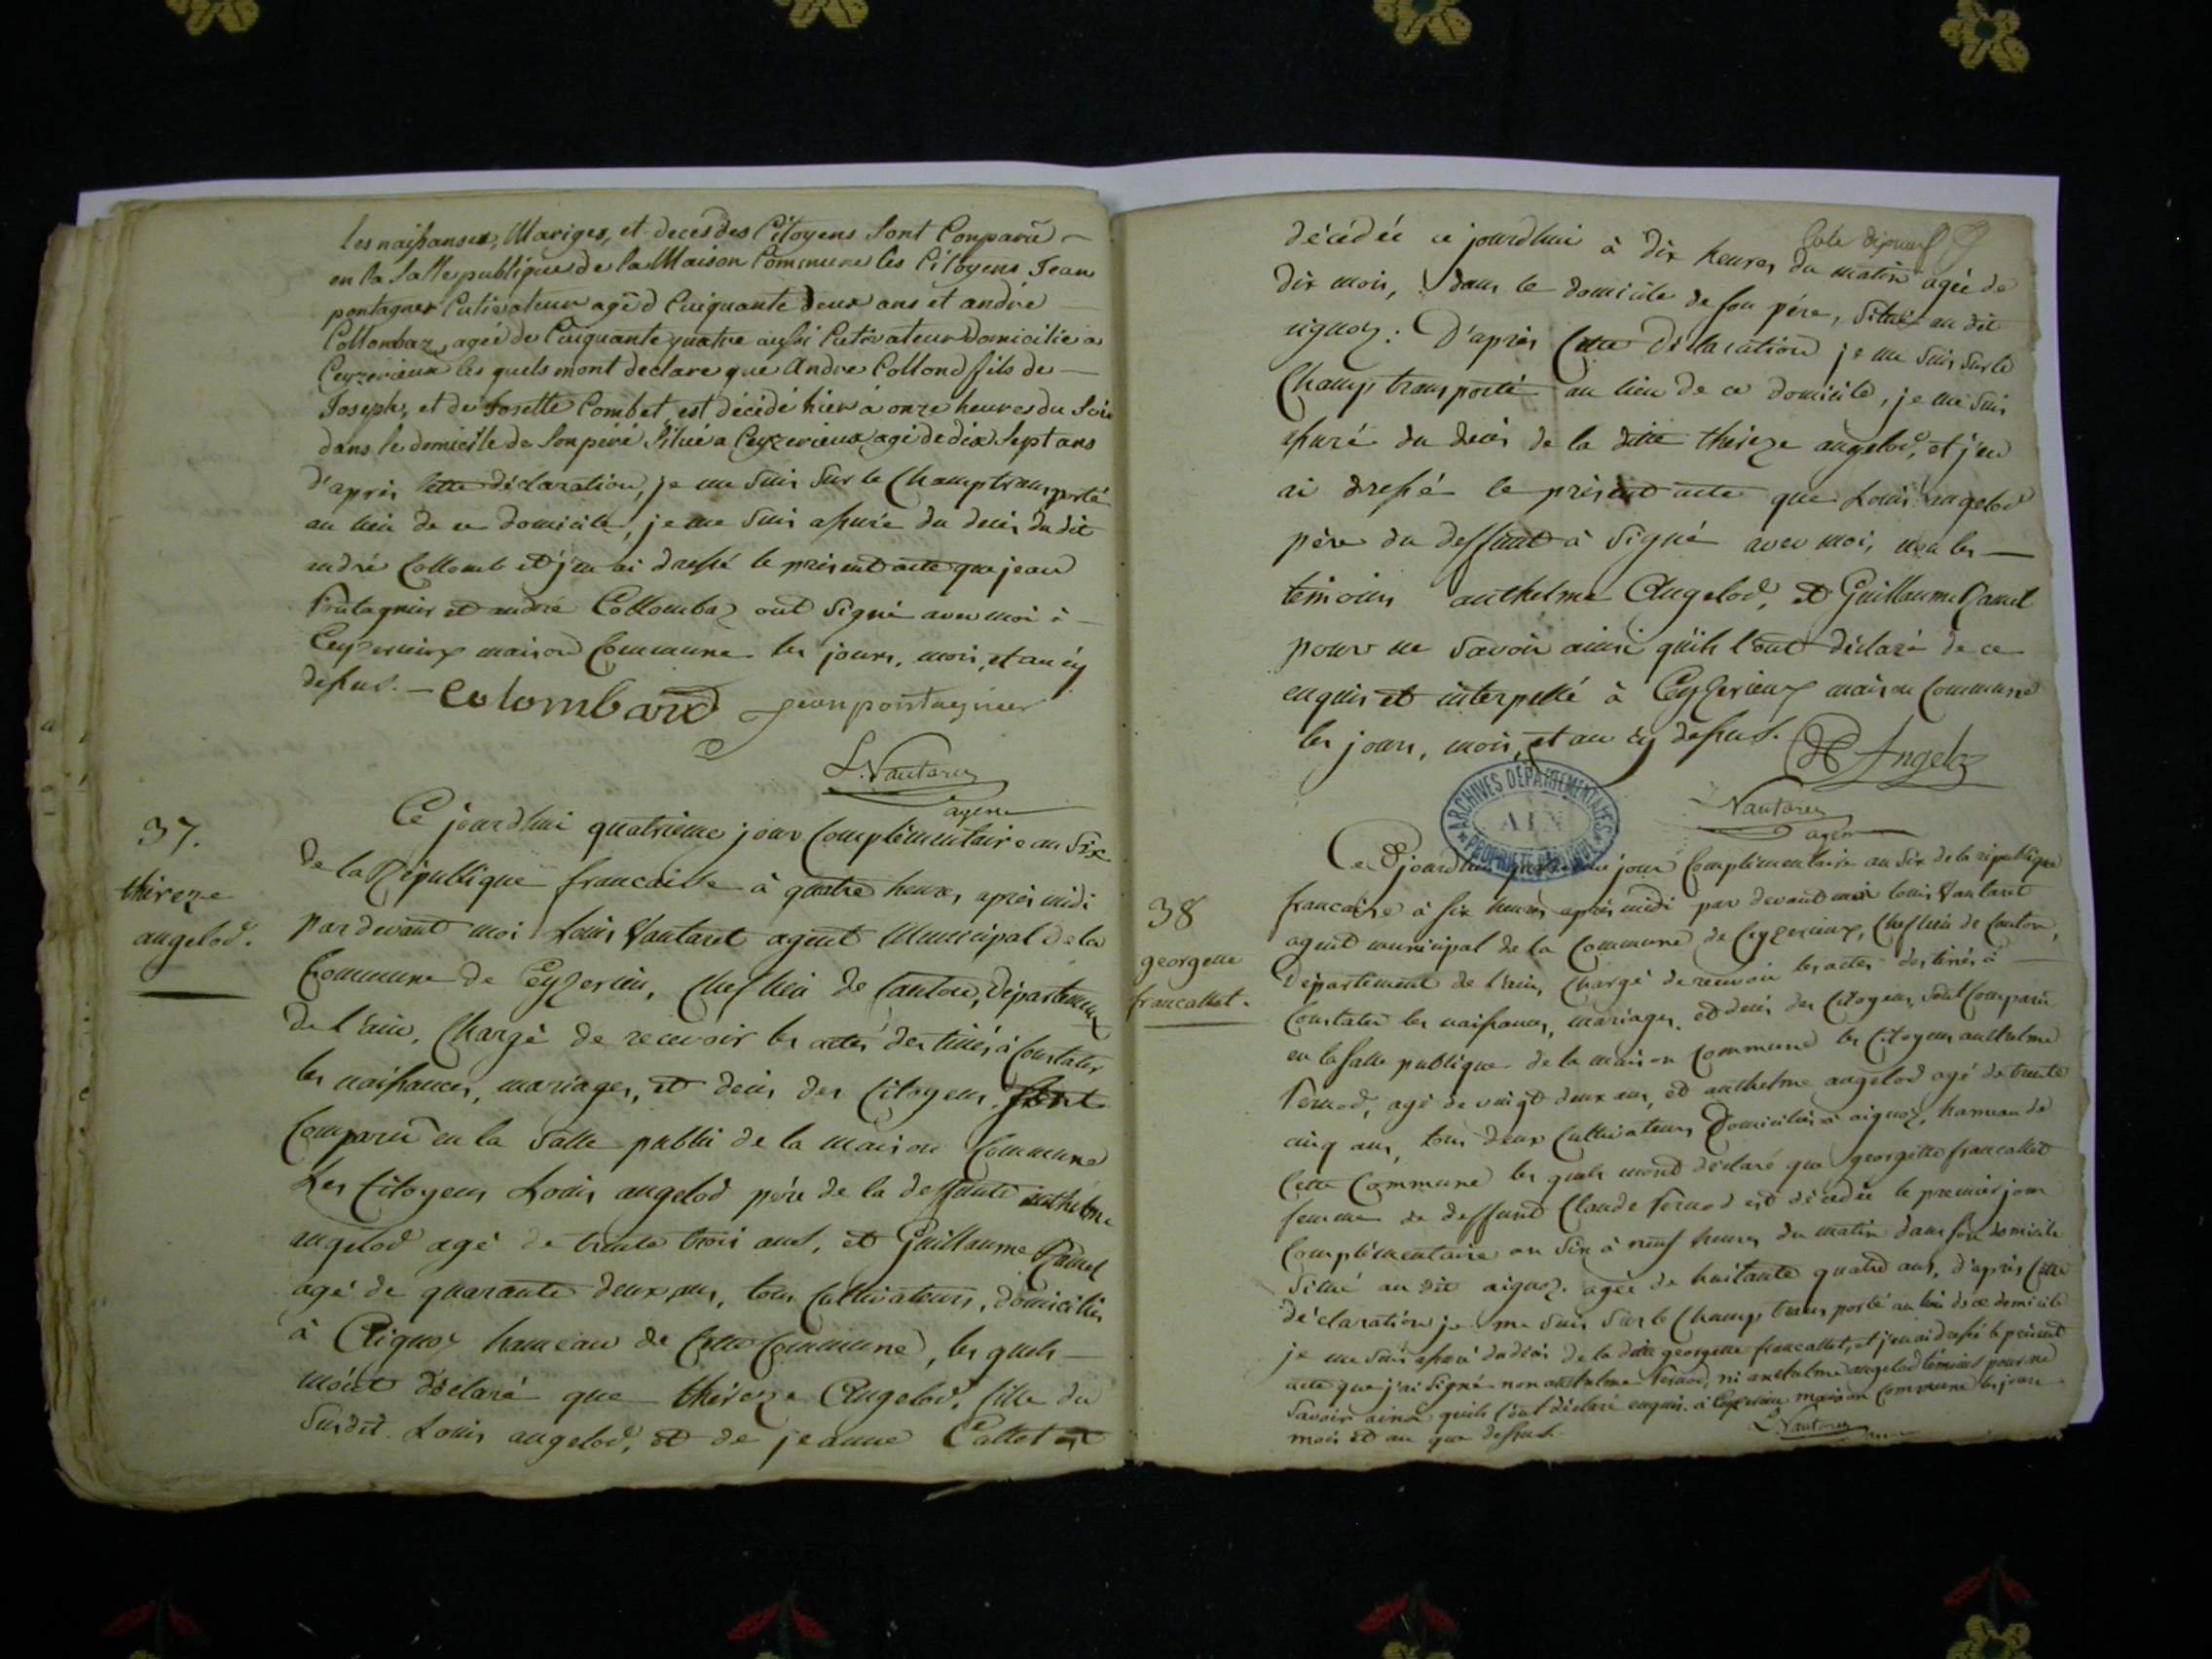 les naissances, Mariges, et deces des Citoyens sont Comparû
en la Salle publique de la Maison Commune les Citoyens Jean
pontagner Cutivateur agé d Cinquante deux ans et andré
Collombaz, agéé de Cinquante quatre aussi Cutivateur domicilie a
Ceyzerieux les quels mont declare que Andre Collond fils de
Joseph, et de Josette Combet est décédé hier à onze heures du Soir
dans le domicile de Son péré Situé a Ceyzerieux agé de dix Sept ans
d'après cette déclaration, je me suis sur le Champ transporté
au lieu de ce domicile, je me suis assuré du decés du dit
andré Collomb et j'en ai dressé le présent acte que jean
Pontagnier et andré Collombaz ont Signé avec moi à
Ceyzerieux maison Commune les jours, mois, et an cy
dessus. Colombard jean pontagnier
L. Vautaret
agent
37.
thereze
angelod.
Ce jourdhui quatrieme jour Complémentaire an Six
de la République francaise à quatre heures après midi
par devant moi Louis Vautaret agent Municipal de la
Commune de Ceyzerieu, Chef lieu de Canton, Département
de l'ain, Chargé de recevoir les actes destinés à Constater
les naissances, mariages, et decés des Citoyens sont
Comparu en la Salle public de la maison Commune
Les Citoyens Louis angelod pére de la deffunte anthelme
angelod agé de trente trois ans, et Guillaume Ramel
agé de quarante deux ans, tous Cultivateurs, domiciliés
à Aignoz hameau de Cette Commune, les quels
mont déclaré que théreze Angelod, fille du
Susdit Louis angelod, et de jeanne Callet est
décédée ce jourdhui à dix heures du matin agée de
dix mois, dans le domicile de son pére, Situé au dit
aignoz: D'après Cette Déclaration je me suis sur le
Champ transporté au lieu de ce domicile, je me suis
assuré du decés de la ditte théreze angelod, et j'en
ai dressé le présent acte que Louis angelod
pére du deffunt à Signé avec moi, non les
témoins anthelme Angelod, et Guillaume Ramel
pour ne Savoir ainsi qu'ils l'ont déclaré de ce
enquis et interpellé à Ceyzerieux maison Commune
les jours, mois, et an cy dessus. Angeloz
Vautaret
agent
ARCHIVES DÉPARTEMENTALES
AIN
PROPRIÉTÉ PUBLIQUE
38
georgette
francallet.
Ce jourdhui jour Complémentaire an Six de la république
francaise à six heures après midi par devant moi louis Vautaret
agent municipal de la Commune de Ceyzerieux, Chef lieu de Canton,
Département de l'ain, Chargé de recevoir les actes destinés à
Constater les naissances, mariages, et decés des Citoyens, sont Comparu
en la Salle publique de la maison Commune les Citoyens anthelme
Vernod, agé de vingt deux ans, et anthelme angelod agé de trente
cinq ans, tous deux Cultivateurs Domiciliés à aignoz, hameau de
Cette Commune les quels mont déclaré que georgette francallet
femme de deffunt Claude Vernod est décédée le premier jour
Complémentaire an Six à neuf heures du matin dans son domicile
Situé au dit aignoz. agée de huitante quatre ans, d'après Cette
déclaration je me suis sur le Champ transporté au lieu de ce domicile
je me suis assuré du decés de la ditte georgette francallet, et j'en ai dressé le présent
acte que j'ai Signé non anthelme Vernod, ni anthelme angelod témoins pour ne
Savoir ainsi quils l'ont déclaré enquis à Ceyzerieu maison Commune les jours
mois et an que dessus.
L. Vautaret